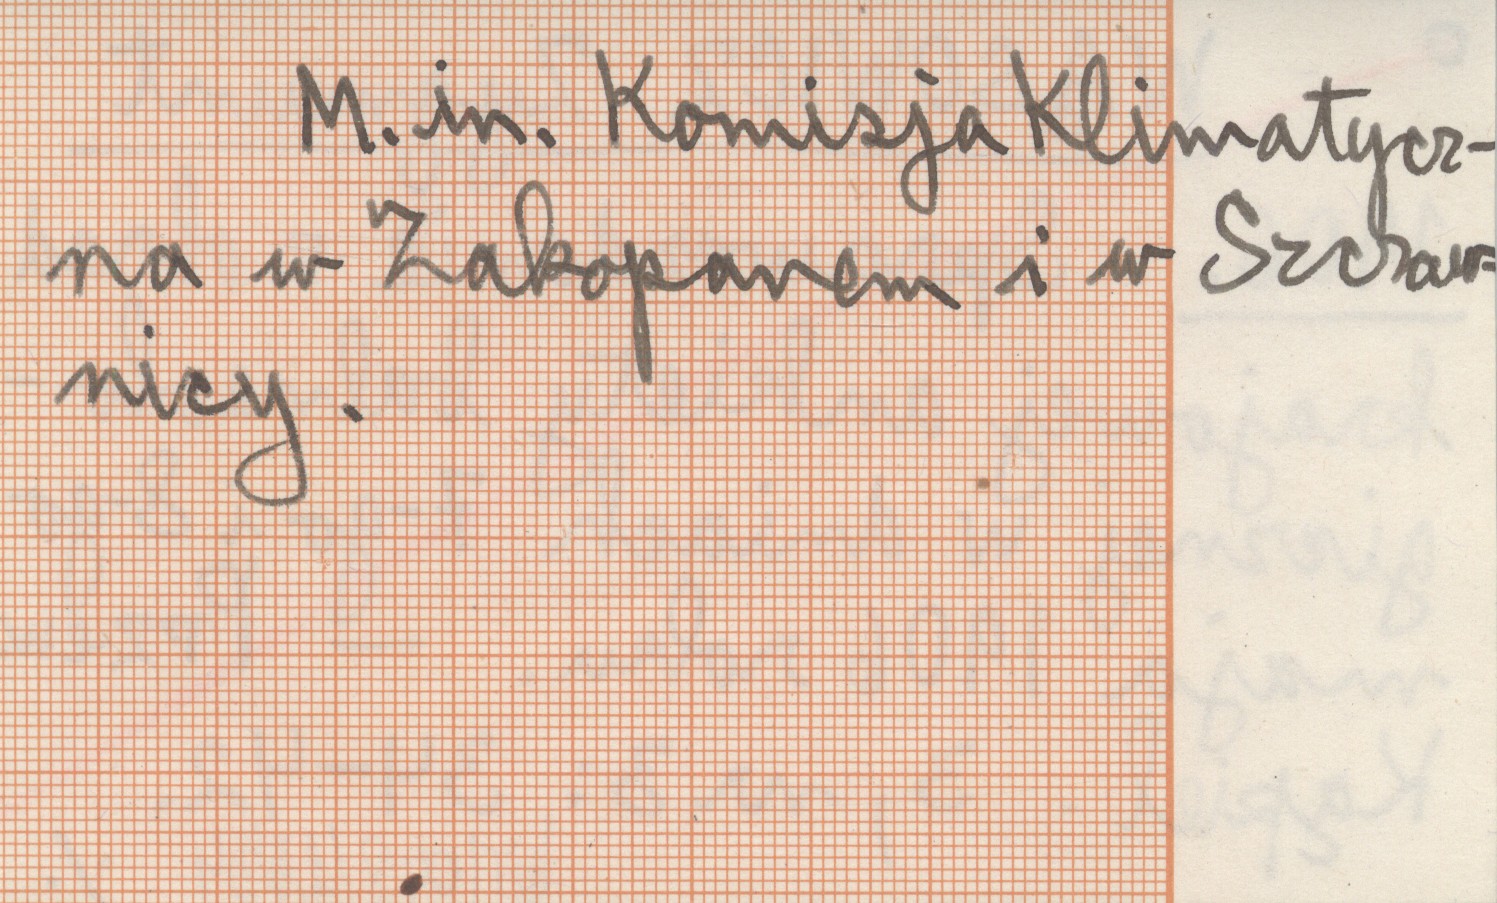 M. in. Komisja Klimatycz-
na w Zakopanem i w Szczaw-
nicy.